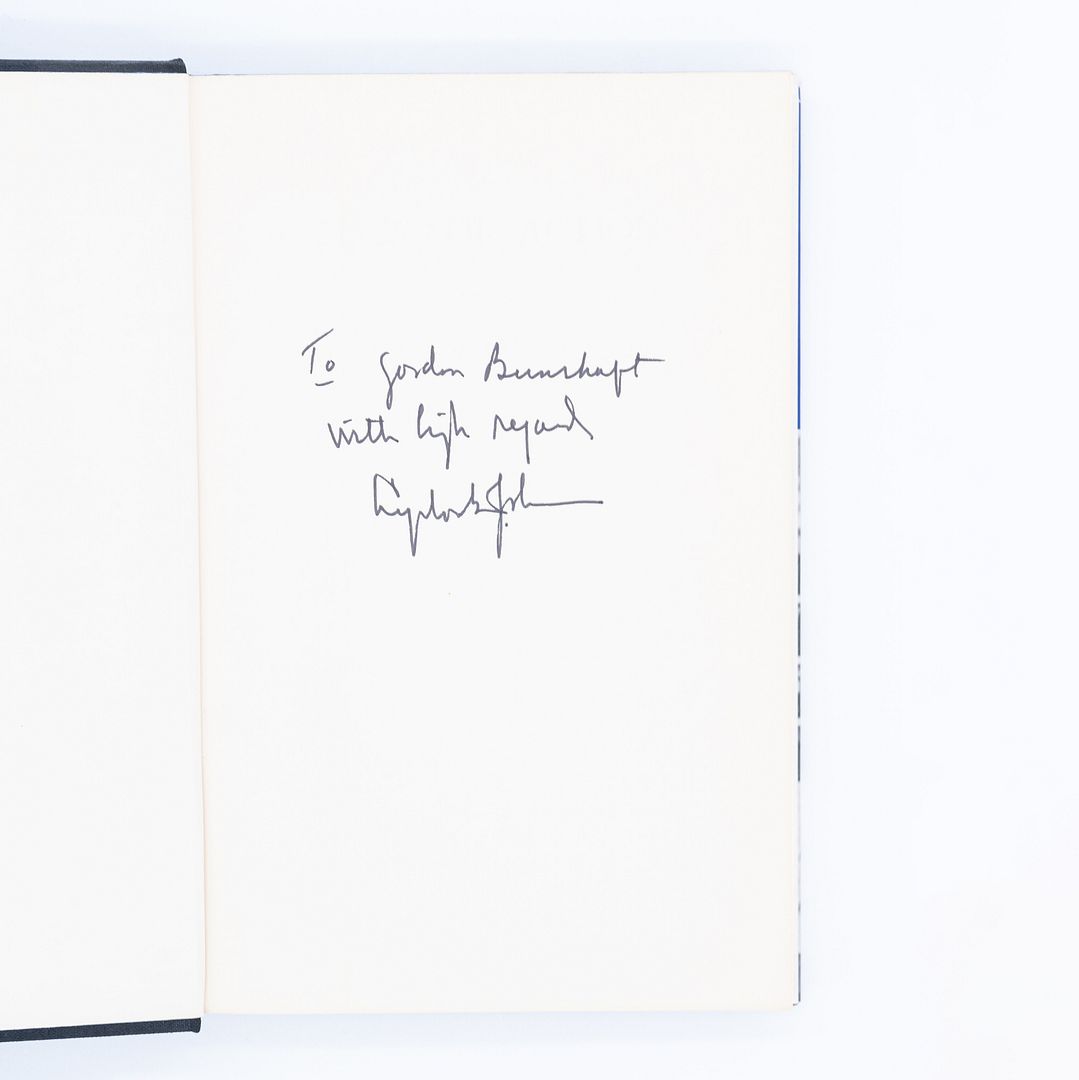 To Gordon Bunshaft
with high regard
Lyndon B. Johnson